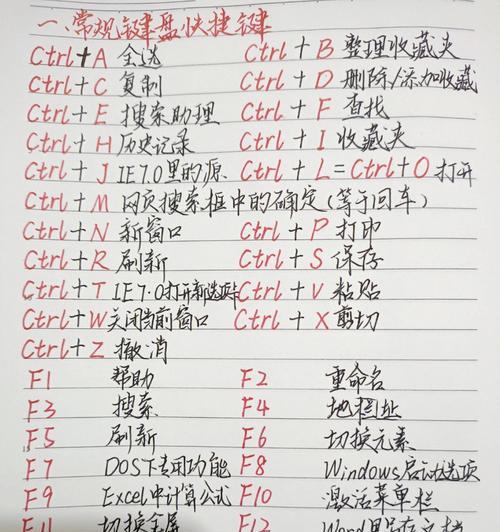 一、常规键盘快捷键
Ctrl+A 全选 Ctrl+B 整理收藏夹
Ctrl+C 复制 Ctrl+D 删除/添加收藏
Ctrl+E 搜索助理 Ctrl+F 查找
Ctrl+H 历史记录 Ctrl+I 收藏夹
Ctrl+J IE7.0里的源 Ctrl+L=Ctrl+O 打开
Ctrl+M 网页搜索框中的确定(等于回车)
Ctrl+N 新窗口 Ctrl+P 打印
Ctrl+R 刷新 Ctrl+S 保存
Ctrl+T IE7.0打开新选项卡 Ctrl+V 粘贴
Ctrl+W 关闭当前窗口 Ctrl+X 剪切
Ctrl+Z 撤消
F1 帮助 F2 重命名
F3 搜索 F4 地址
F5 刷新 F6 切换元素
F7 DOS下专用功能 F8 Windows启动选项
F9 Excel中计算公式 F10 激活菜单栏
F11 切换全屏 F12 Word另存文档